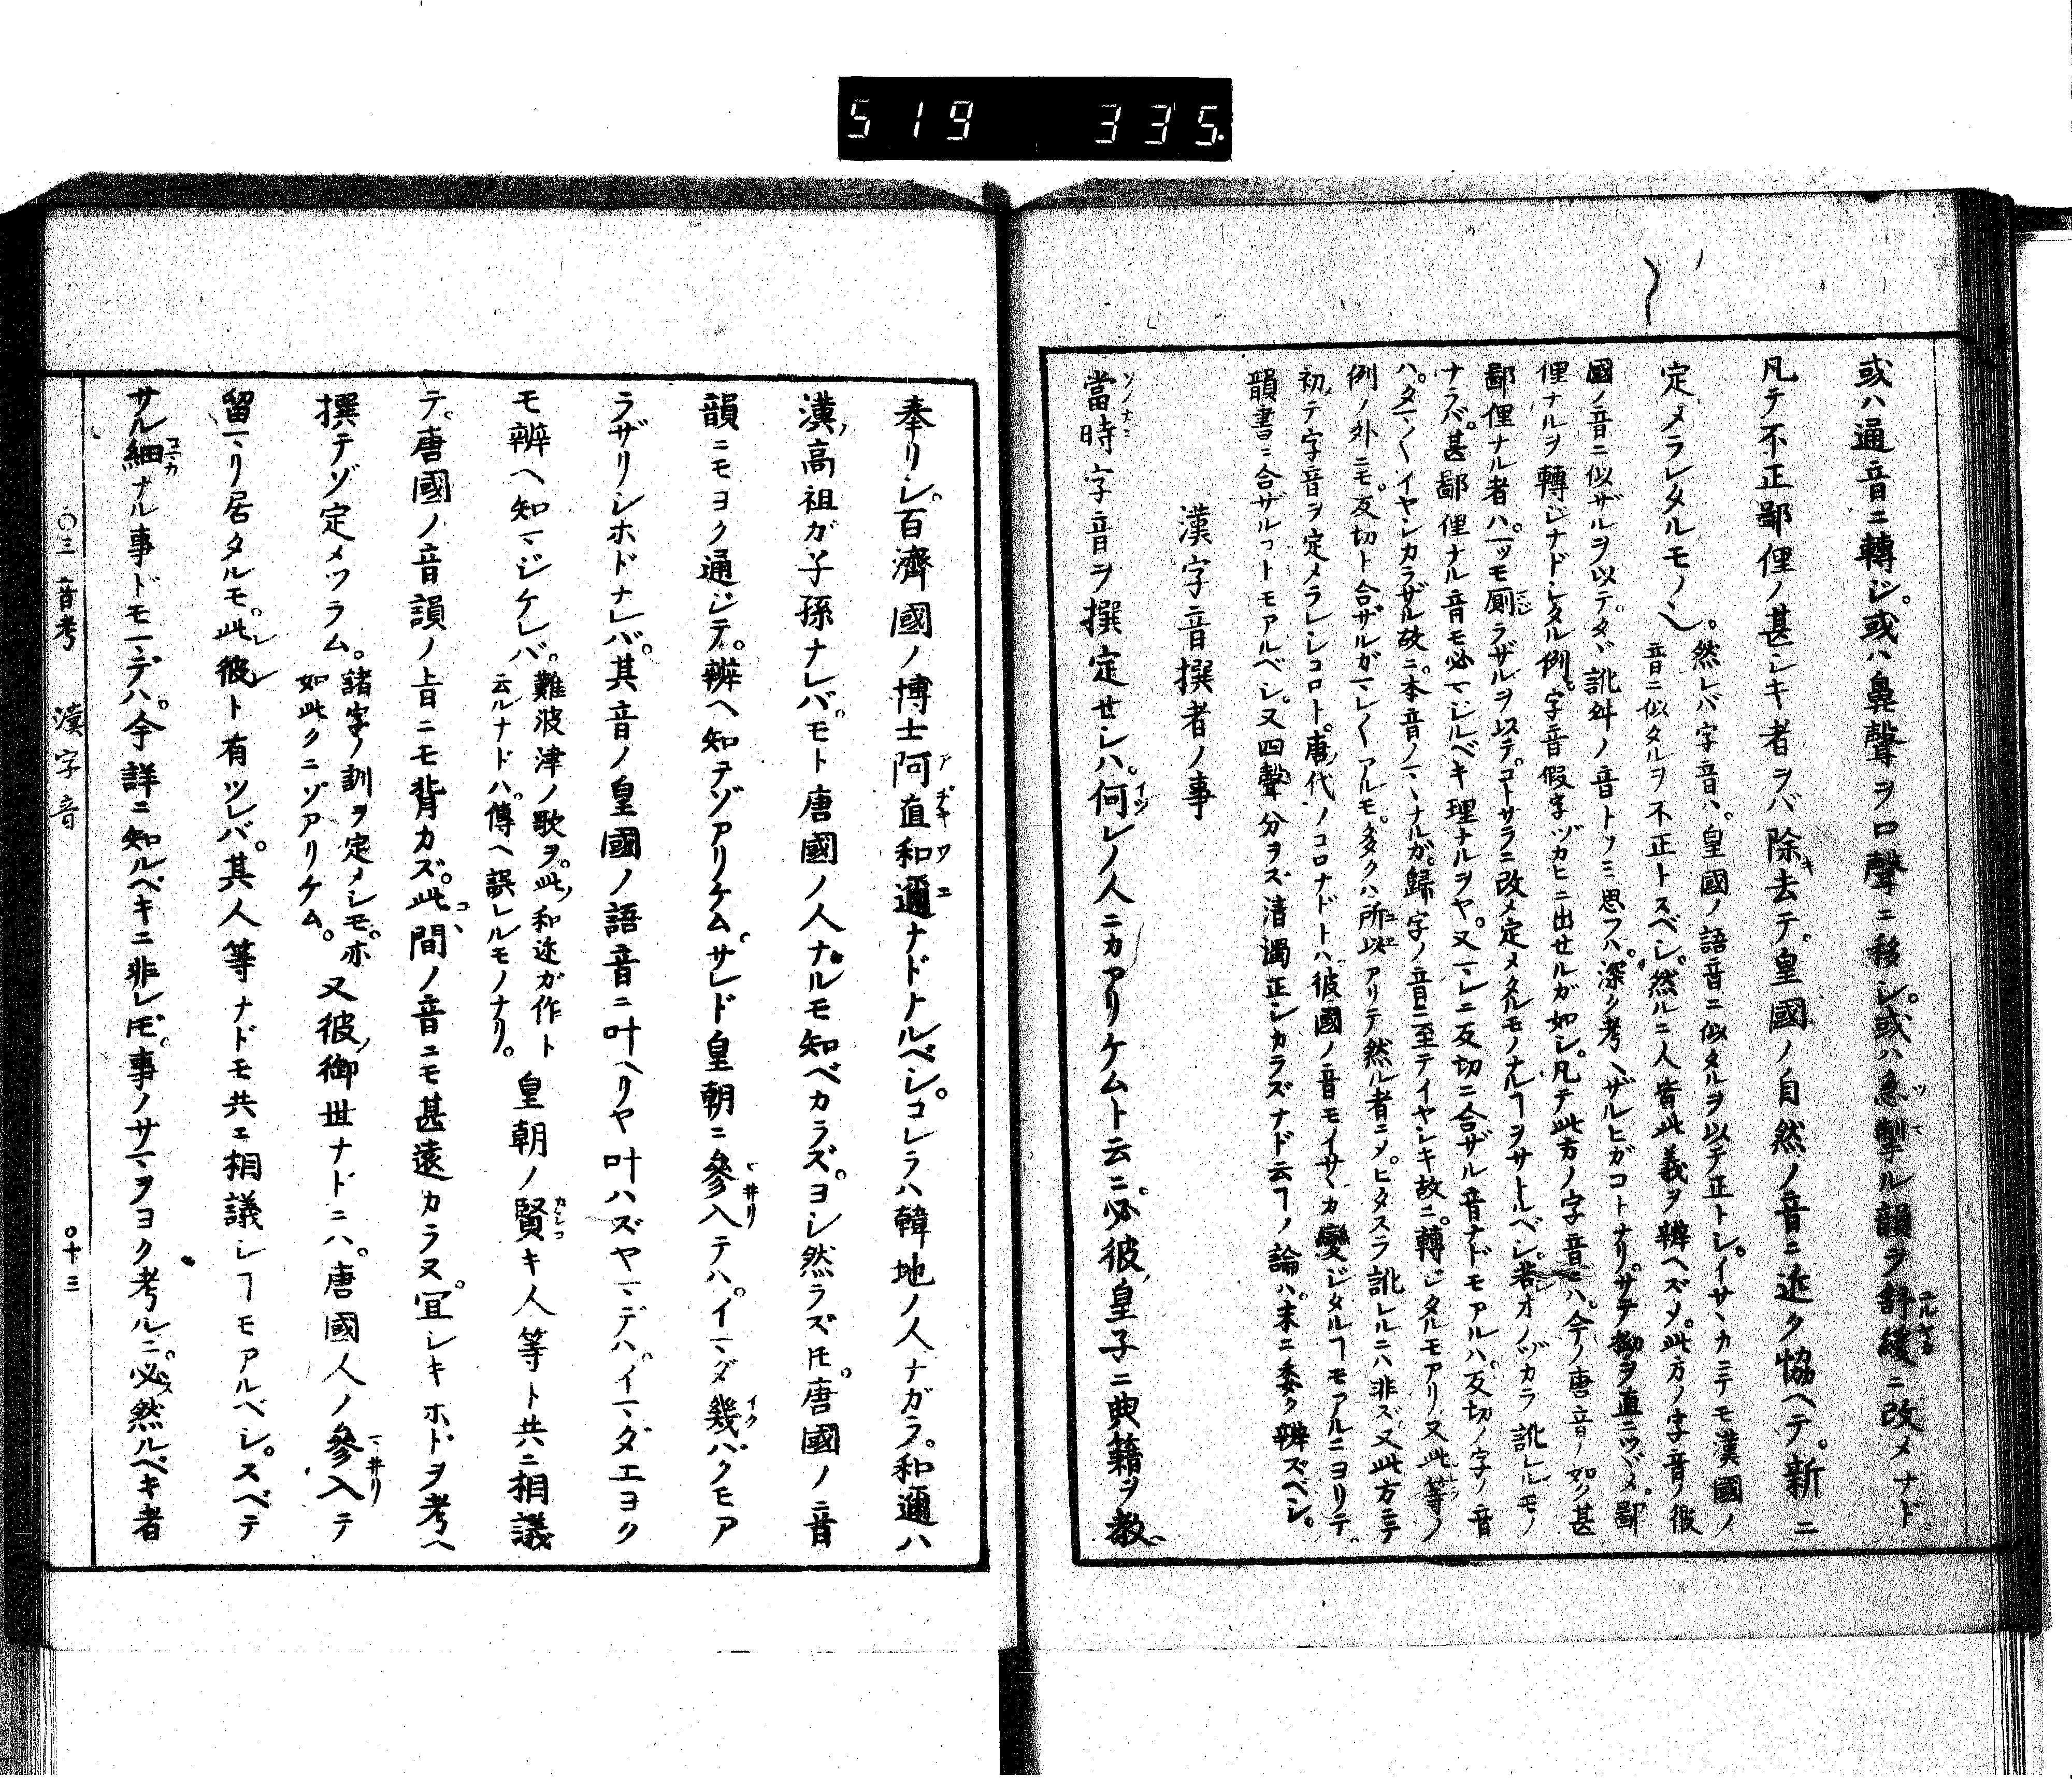 519 335
或ハ通音ニ轉ジ。或ハ鼻聲ヲ口聲ニ移シ。或ハ急掣ル韻ヲ舒緩ニ改メナド
凡テ不正鄙俚ノ甚シキ者ヲバ除去テ。皇國ノ自然ノ音ニ近ク恊ヘテ。新ニ
定メラレタルモノ也。
然レバ字音ハ。皇國ノ語音ニ似タルヲ以テ正トシ。イサヽカニテモ漢國ノ
音ニ似タルヲ不正トスベシ。然ルニ人皆此義ヲ辨ヘズメ。此方ノ字音ノ彼
國ノ音ニ似ザルヲ以テ。タヾ訛舛ノ音トノミ思フハ。深ク考ヘザルヒガコトナリ。サテ拗ヲ直ニツヾメ。鄙
俚ナルヲ轉ジナドシタル例。字音假字ヅカヒニ出セルガ如シ。凡テ此方ノ字音ニハ。今ノ唐音ノ如ク甚
鄙俚ナル者ハ。一ツモ厠ラザルヲ以テ。コトサラニ改メ定メタルモノナルヿヲサトルベシ。若オノヅカラ訛レルモノ
ナラバ。甚鄙俚ナル音モ必マジルベキ理ナルヲヤ。又マレニ反切ニ合ザル音ナドモアルハ。反切ノ字ノ音
ハ。タマ〱イヤシカラザル故ニ。本音ノマヽナルガ。歸字ノ音ニ至テイヤシキ故ニ。轉ジタルモアリ。又此等ノ
例ノ外ニモ。反切ト合ザルガマレ〱アルモ。多クハ所以アリテ然ル者ニメ。ヒタスラ訛レルニハ非ズ。又此方ニテ
初テ字音ヲ定メラレシコロト。唐代ノコロナドトハ。彼國ノ音モイサヽカ變ジタルヿモアルニヨリテ。
韻書ニ合ザルコトモアルベシ。又四聲分ヲズ清濁正シカラズナド云ヿノ論ハ。末ニ委ク辨ズベシ。
漢字音撰者ノ事
當時字音ヲ撰定セシハ。何レノ人ニカアリケムト云ニ。必彼皇子ニ典籍ヲ教
奉リシ。百濟國ノ博士阿直和邇ナドナルベシ。コレラハ韓地ノ人ナガラ。和邇ハ
漢高祖ガ子孫ナレバ。モト唐國ノ人ナルモ知ベカラズ。ヨシ然ラズトモ。唐國ノ音
韻ニモヨク通ジテ。辨ヘ知テゾアリケム。サレド皇朝ニ參入テハ。イマダ幾バクモア
ラザリシホドナレバ。其音ノ皇國ノ語音ニ叶ヘリヤ叶ハズヤマデハ。イマダエヨク
モ辨ヘ知マジケレバ。
難波津ノ歌ヲ。此和迩ガ作ト
云ルナドハ。傳ヘ誤レルモノナリ。
皇朝ノ賢キ人等ト共ニ相議
テ。唐國ノ音韻ノ上ニモ背カズ。此間ノ音ニモ甚遠カラヌ。宜シキホドヲ考ヘ
撰テゾ定メツラム。
諸字ノ訓ヲ定メシモ。亦
如此クニゾアリケム。
又彼御世ナドニハ。唐國人ノ參入テ
留マリ居タルモ。此彼ト有ツレバ。其人等ナドモ共ニ相議シヿモアルベシ。スベテ
サル細ナル事ドモマデハ。今詳ニ知ルベキニ非レ𪜈。事ノサマヲヨク考ルニ。必然ルベキ者
〇三音考 漢字音 〇十三